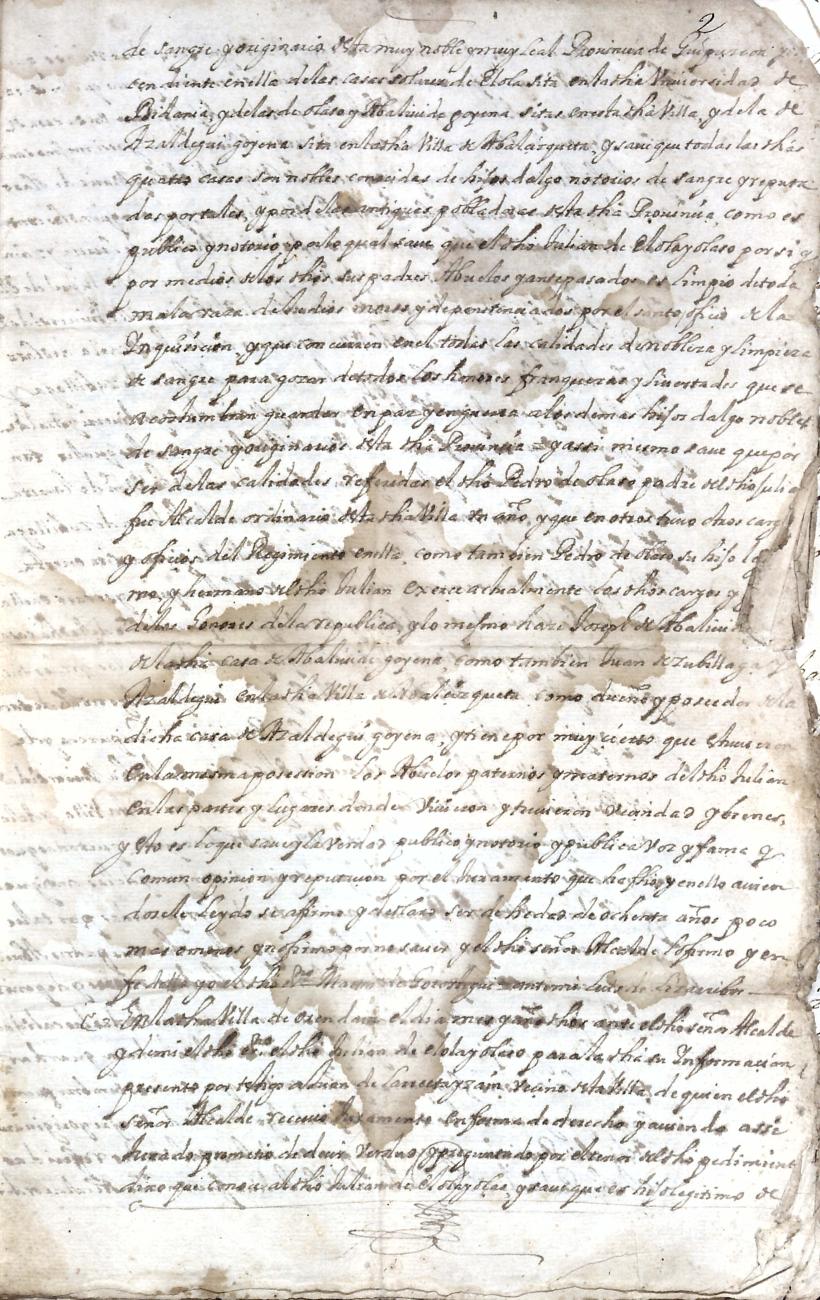 2
de sangre y originario desta muy noble y muy Leal Provincia de Guipuzcoa
cendiente en ella delas casas solares de Elola sita en la dha Universidad de
Bidania, y delas de olaso y Abalivide goyena sitas en esta dha Villa, y dela de
Azaldegui goyena sita en la dha Villa de Abalzizqueta, y save que todas las dhas
quatro casas son nobles conocidas de hijos dalgo notorios de sangre y reputa
das por tales, y por delos antiguos pobladores desta dha Provinçia como es
publico y notorio, por lo qual save que el dho Julian de Elola y olaso por si y
por medio de los dhos sus padres Abuelos y antepasados es limpio de toda
mala raza de Judios moros y de penitenciados por el santo ofiçio de la
Inquisicion, y que concurren en el todas las calidades de nobleza y limpieza
de sangre para gozar de todos los honores franquezas y livertades que se
acostumbran guardar en paz y en guerra a los demas hijos dalgo nobles
de sangre y originarios desta dha Provinçia = y assi mesmo save que por
ser de las calidades referidas el dho Pedro de olaso padre del dho Julia
fue Alcalde ordinario desta dha Villa un año, y que en otros tuvo otros carg
y ofiçios del Regimiento en ella, como tambien Pedro de olaso su hijo le
mo, y hermano del dho Julian exerce actualmente los dhos cargos y
de los honores de la republica, y lo mesmo haze Joseph de Abalivid
de la dha casa de Abalivide goyena, como tambien Juan de Zubillaga
Azaldegui en la dha Villa de Abalzizqueta como dueño y poseedor de la
dicha casa de Azaldegui goyena, y tiene por muy cierto que estuvieron
en la mesma posession los Abuelos paternos y maternos del dho Julian
en las partes y lugares donde vivieron y tuvieron vecindad y bienes,
y esto es lo que save y la verdad publico y notorio y publica voz y fama y
comun opinion y reputacion por el juramento que ha fho, y en ello avien
dosele leydo se afirmo y declaro ser de hedad de ochenta años poco
mas o menos y no firmo por no saver y el dho señor Alcalde lo firmo y en
fe dello yo el dho ess.no Martin de = ante mi Luis de
En la dha Villa de el dia mes y año dhos ante el dho señor Alcalde
y de mi el dho ess.no el dho Julian de elola y olaso para la dha su Informacion
presento por testigo a Julian de vecino desta Villa, de quien el dho
señor Alcalde recivio Juramento en forma de derecho y aviendo assi
Jurado prometio de decir verdad, y preguntado por el tenor del dho pedimient
dixo que conoce al dho Julian de Elola y olaso, y save que es hijo legitimo de